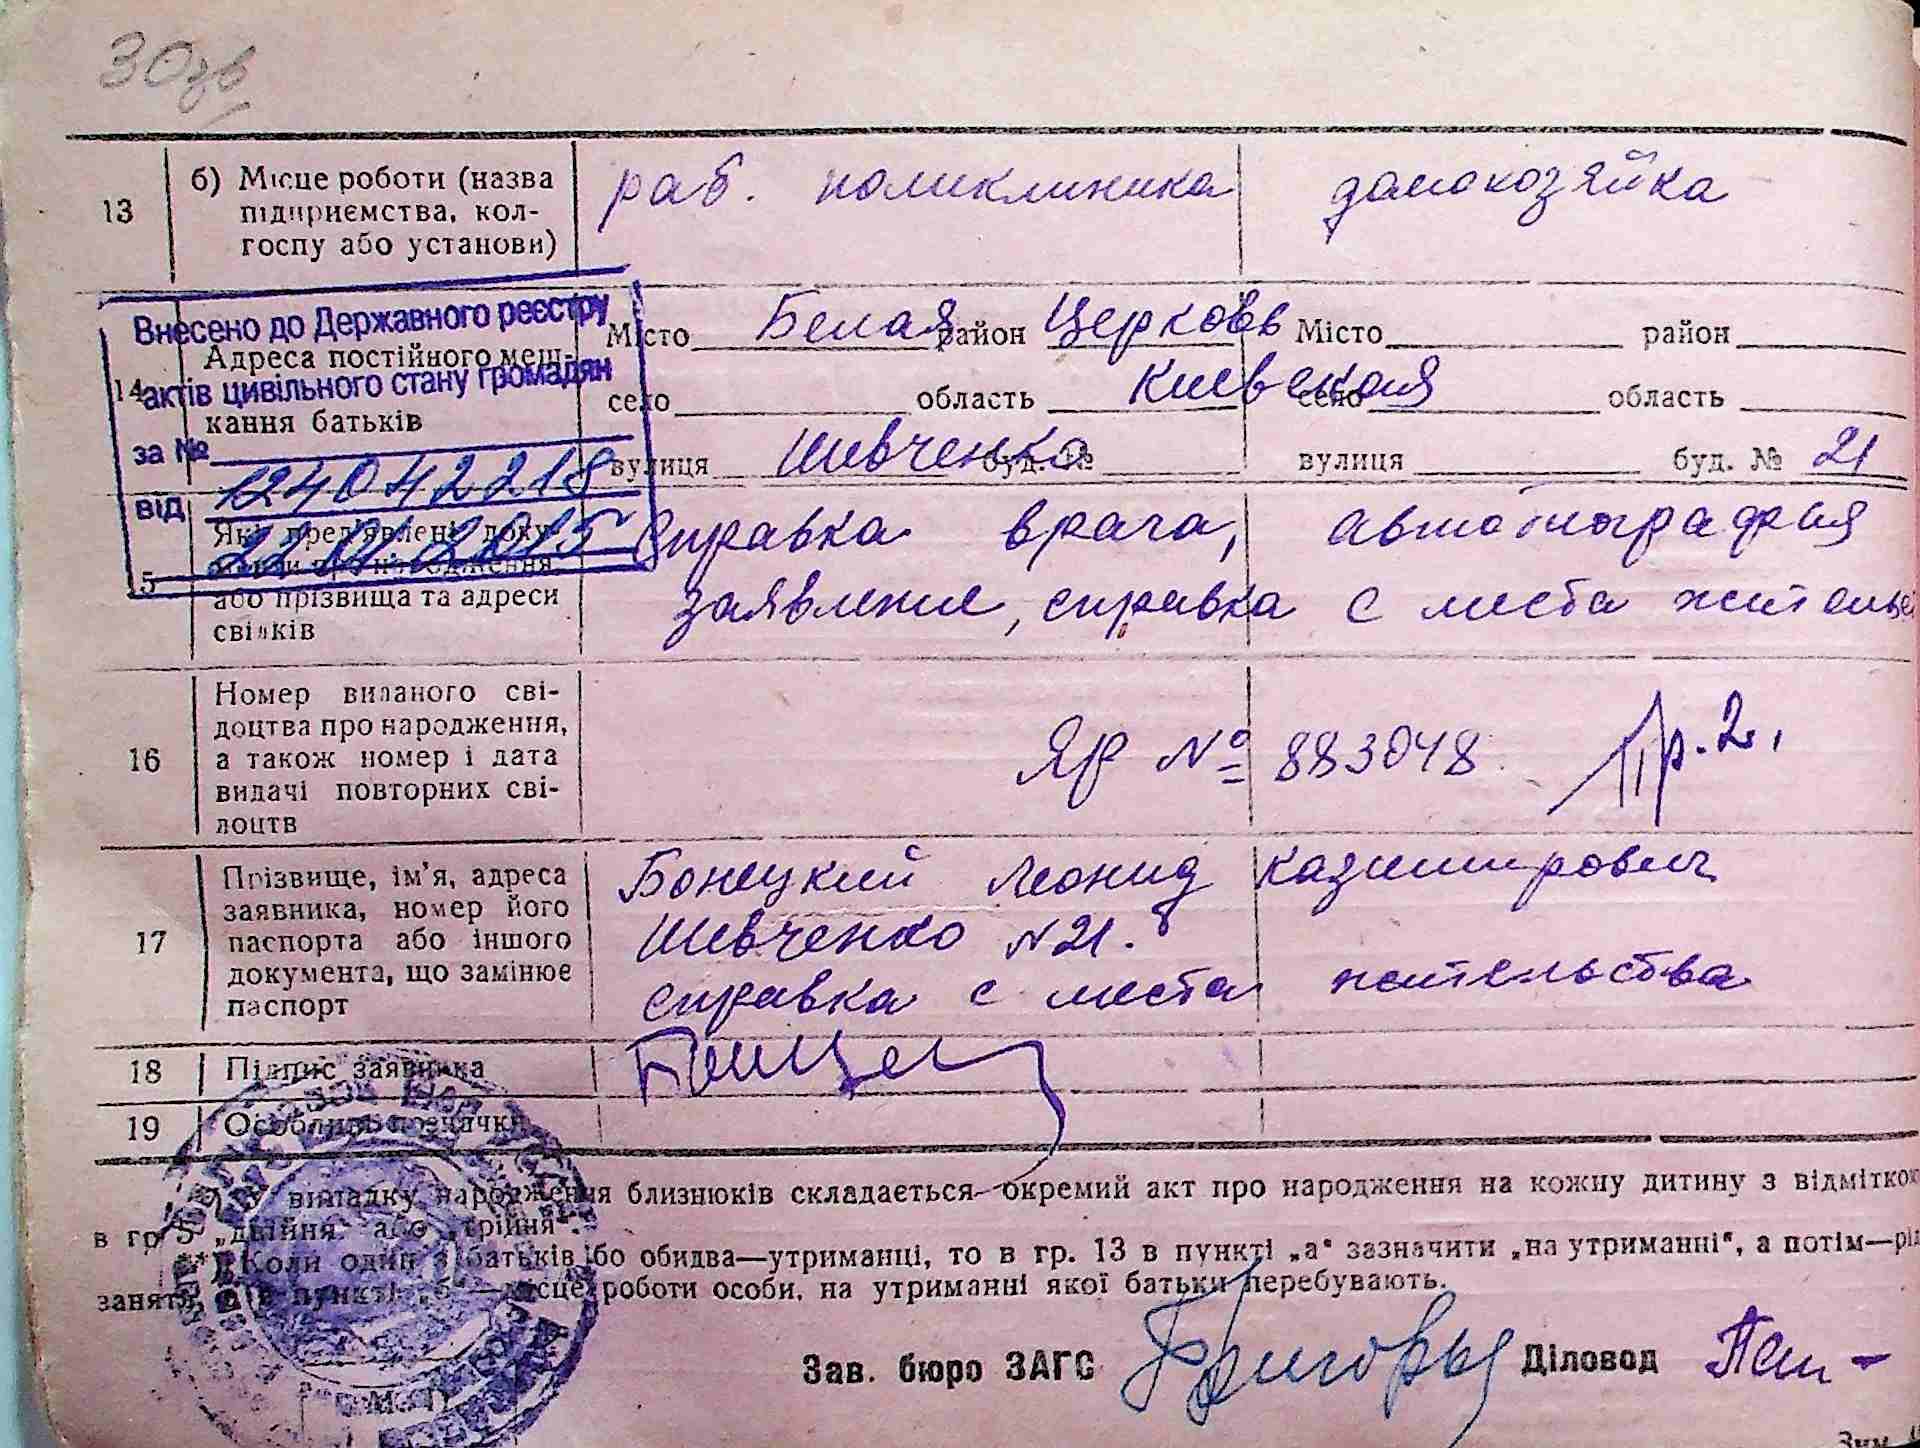 30зв
13
б) Місце роботи (назва підприємства, колгоспу або установи)
раб. поликлиника
домохозяйка
Внесено до Державного реєстру
актів цивільного стану громадян
за № 124042218
від 22.01.2015
14
Адреса постійного меш-
кання батьків
Місто Белая район Церковь Місто район
село область Киевская село область
вулиця Шевченко буд. № вулиця буд. № 21
15
Які пред'явлені доку-
або прізвища та адреси
свідків
Справка врача, автобиография
заявление, справка с места жительс
16
Номер виданого сві-
доцтва про народження,
а також номер і дата
видачі повторних сві-
доцтв
ЯР № 883048 Пр. 2.
17
Прізвище, ім'я, адреса
заявника, номер його
паспорта або іншого
документа, що замінює
паспорт
Бонецкий Леонид Казимирович
Шевченко №21.
справка с места жительства
18
Підпис заявника
19
Особливі позначки
У випадку народження близнюків складається окремий акт про народження на кожну дитину з відміткою
в гр 5 „двійня" або „трійня".
**) Коли один з батьків або обидва—утриманці, то в гр. 13 в пункті „а" зазначити „на утриманні", а потім—рід
занять, а в пункті „б"—місце роботи особи, на утриманні якої батьки перебувають.
Зав. бюро ЗАГС
Діловод